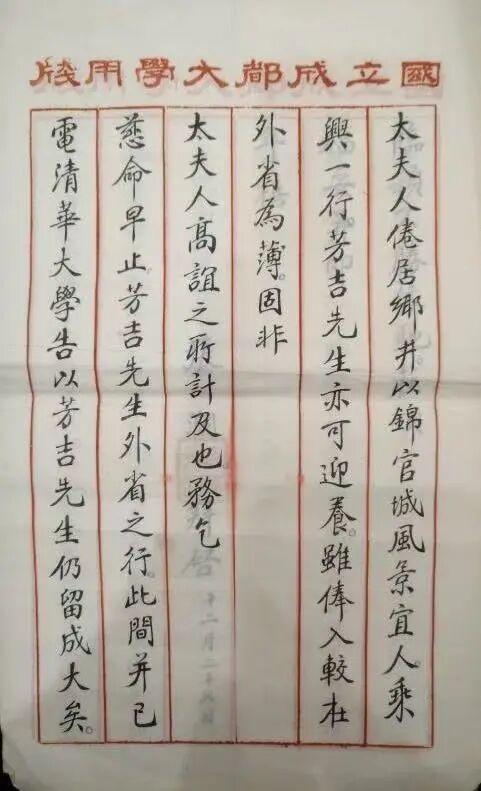 國立成都大學用牋
太夫人倦居鄉井以錦官城風景宜人。乘
興一行芳吉先生亦可迎養。雖俸入較在
外省為薄。固非
太夫人高誼之所計及也務乞
慈命早止芳吉先生外省之行。此間并已
電清華大學告以芳吉先生仍留成大矣。